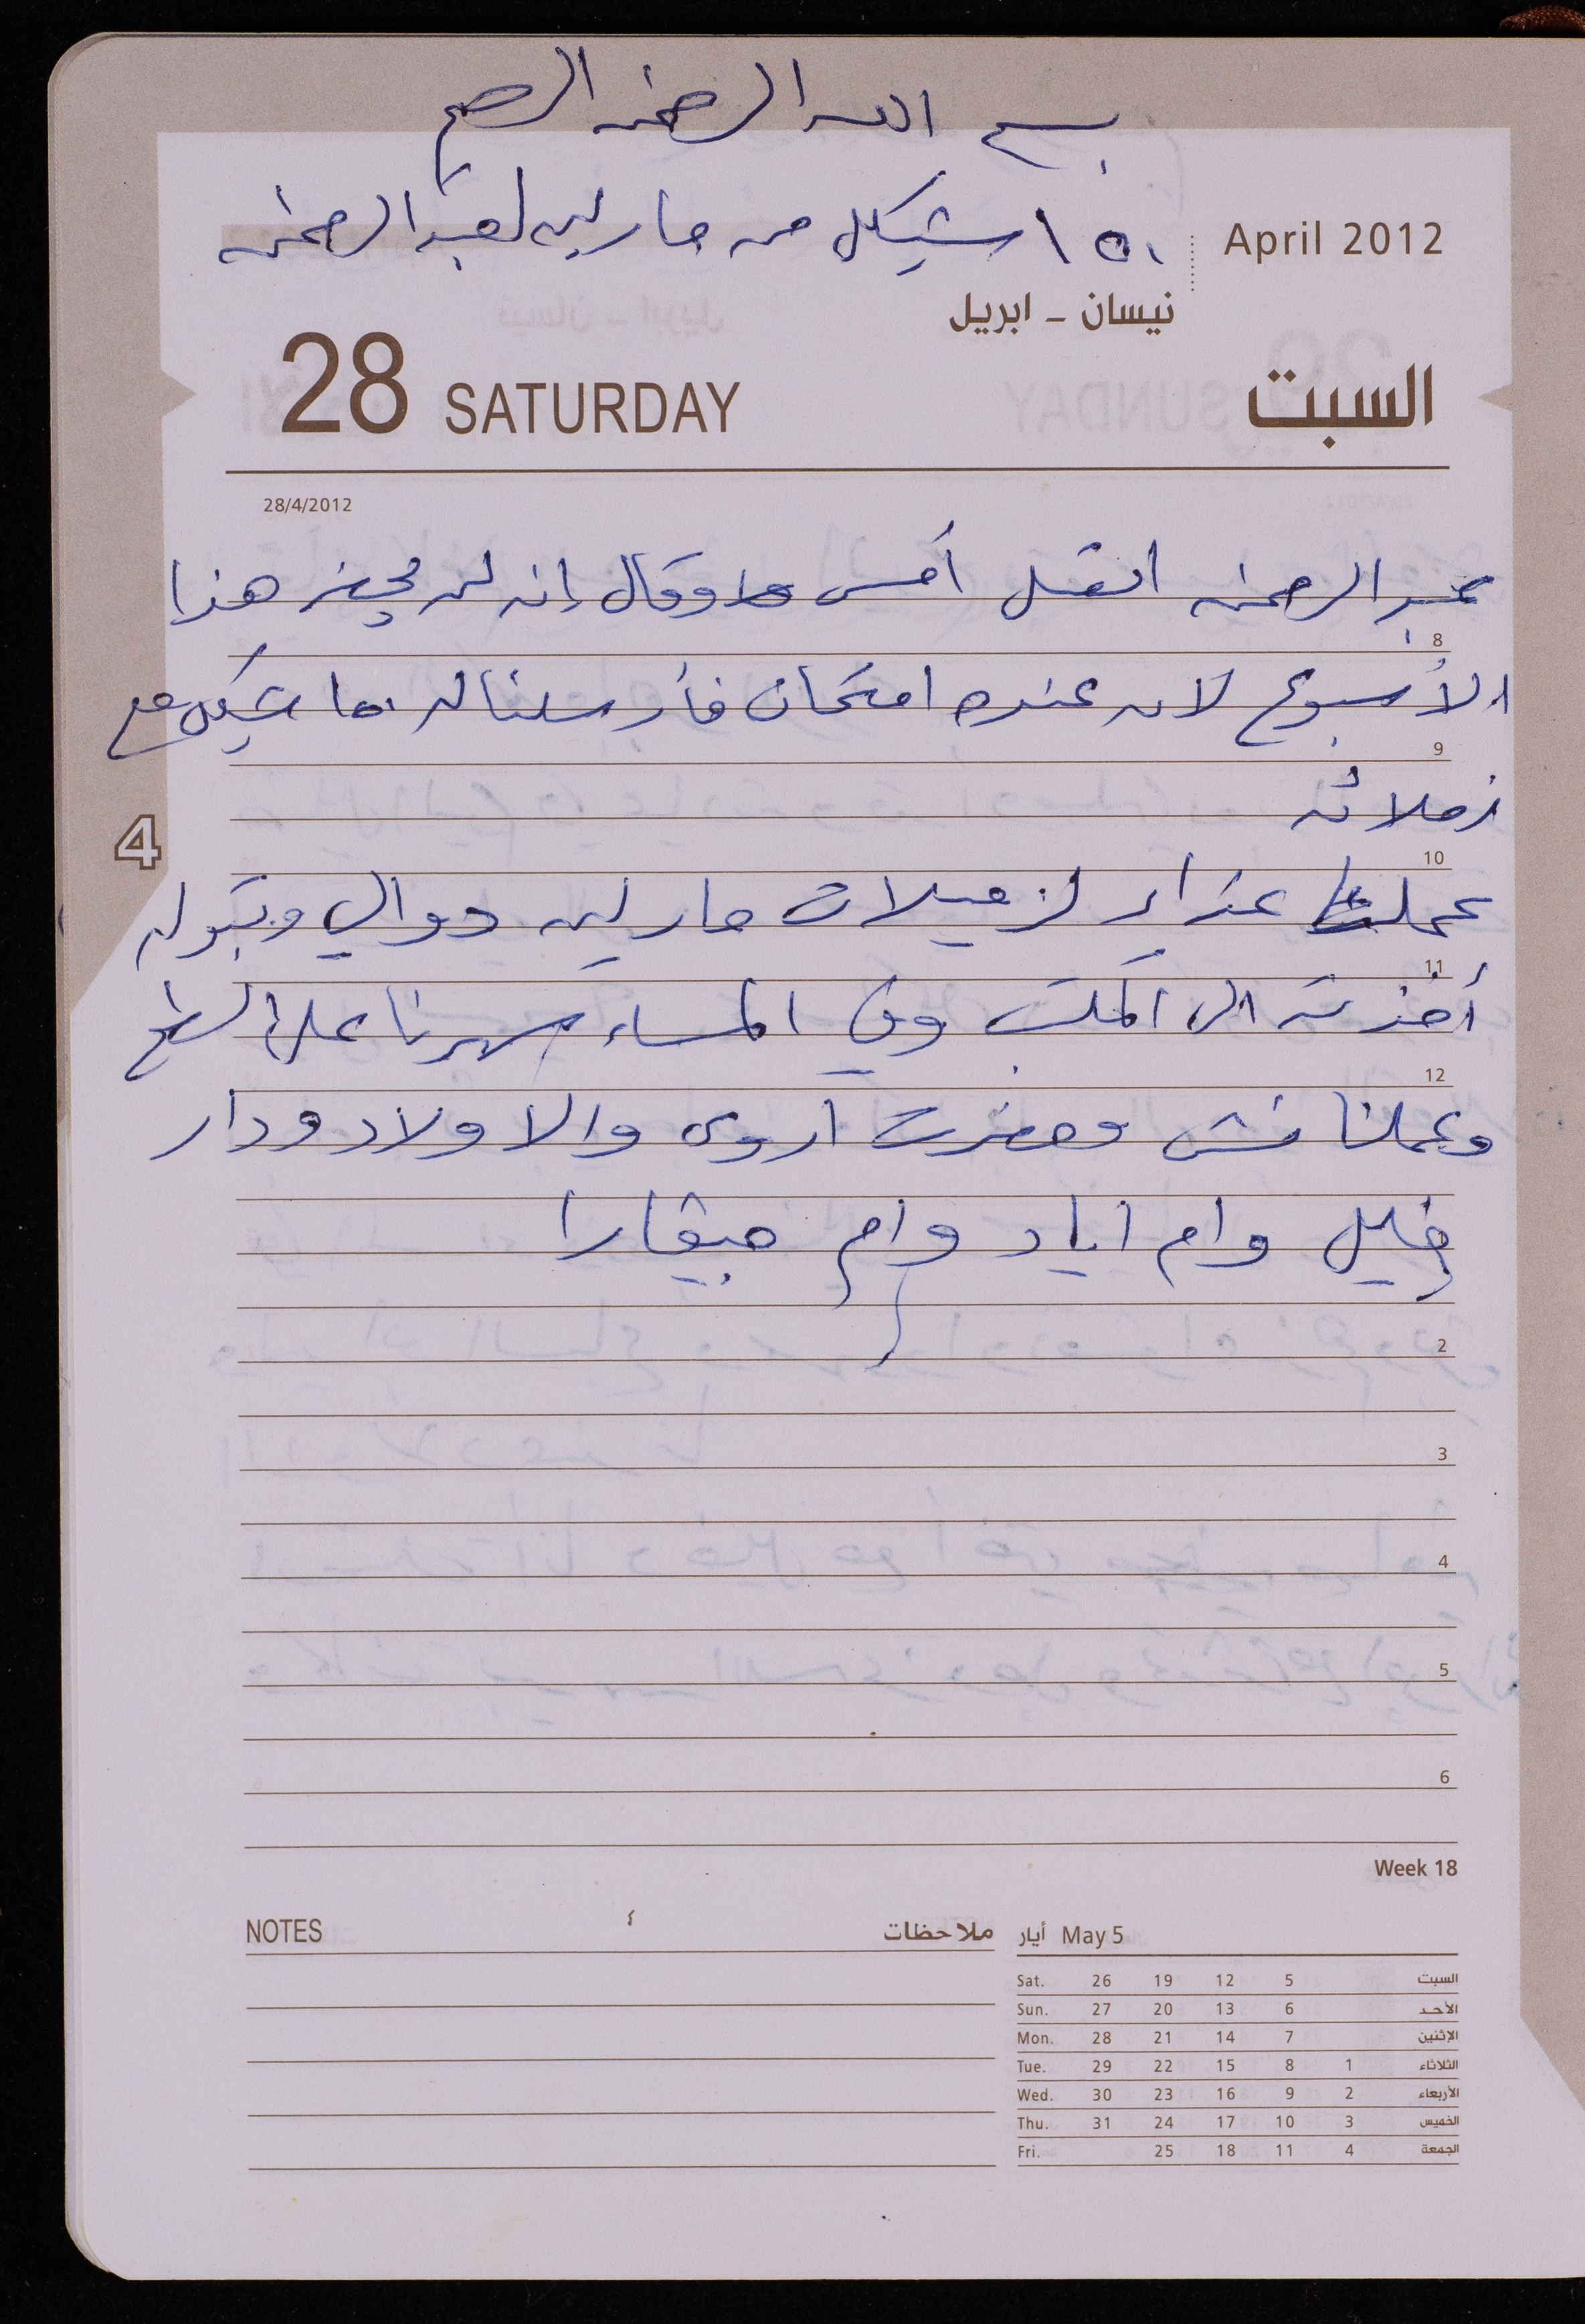 بسم الله الرحمن الرحيم
١٥٠ شيكل من مارلين لعبد الرحمن
April 2012
نيسان - ابريل
28 SATURDAY السبت
28/4/2012
عبد الرحمن اتصل أمس وقال إنه لن يجيء هذا
8
الأسبوع لانه عنده امتحان فأرسلنا له شيكل مع
9
زملائه
4
10
عملت غداء لزميلات مارلين دوالي وتبوله
11
أخذته الى المكتب وفي المساء سهرنا على السطح
12
وعملنا مش وحضرت اروى والاولاد ودار
خليل وام اياد وام جيفارا
2
3
4
5
6
Week 18
NOTES ملاحظات
أيار May 5
Sat. 26 19 12 5 السبت
Sun. 27 20 13 6 الأحد
Mon. 28 21 14 7 الإثنين
Tue. 29 22 15 8 1 الثلاثاء
Wed. 30 23 16 9 2 الأربعاء
Thu. 31 24 17 10 3 الخميس
Fri. 25 18 11 4 الجمعة